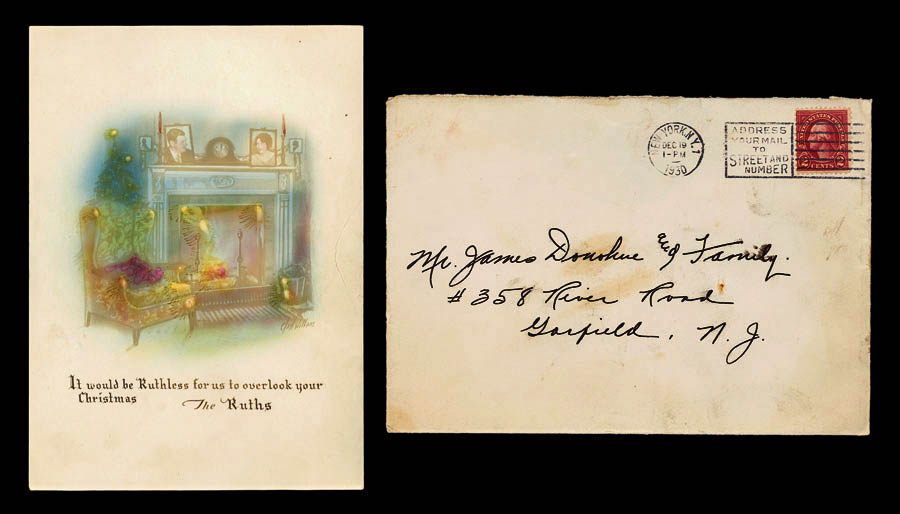 It would be Ruthless for us to overlook your
Christmas The Ruths
NEW YORK, N.Y. 1
DEC 19
1-PM
1930
ADDRESS
YOUR MAIL
TO
STREET AND
NUMBER
UNITED STATES POSTAGE
2 CENTS 2
Mr. James Donohue and Family.
# 358 River Road
Garfield, N. J.